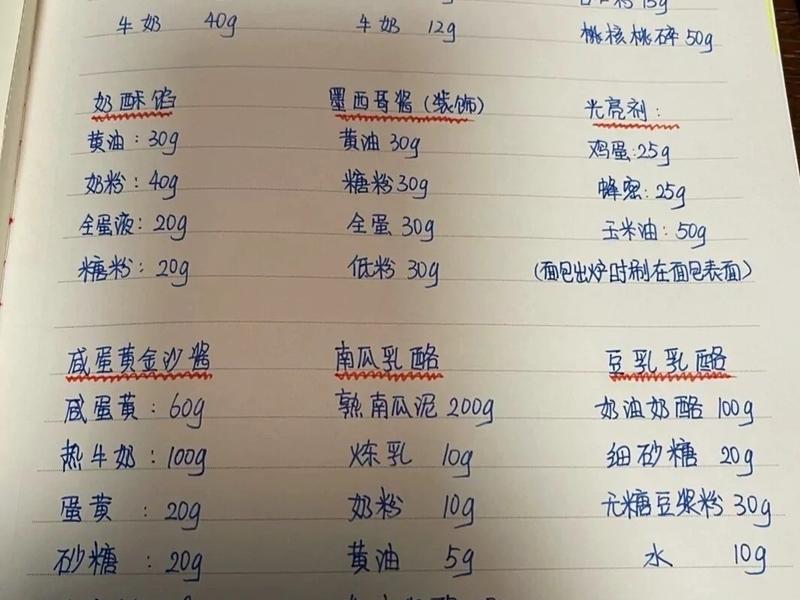 牛奶 40g
牛奶 12g
15g
核桃碎 50g
奶酥馅
黄油：30g
奶粉：40g
全蛋液：20g
糖粉：20g
墨西哥酱（装饰）
黄油 30g
糖粉 30g
全蛋 30g
低粉 30g
光亮剂：
鸡蛋：25g
蜂蜜：25g
玉米油：50g
（面包出炉时刷在面包表面）
咸蛋黄金沙酱
咸蛋黄：60g
热牛奶：100g
蛋黄：20g
砂糖：20g
南瓜乳酪
熟南瓜泥 200g
炼乳 10g
奶粉 10g
黄油 5g
豆乳乳酪
奶油奶酪 100g
细砂糖 20g
无糖豆浆粉 30g
水 10g